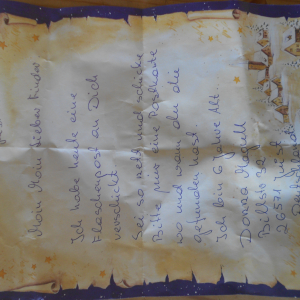 Moin Moin lieber Finder
Ich habe heute eine
Flaschenpost an Dich
verschickt
Sei so nett und schicke
Bitte mir eine Postkarte
wo und wann du die
gefunden hast.
Ich bin 6 Jahre Alt..
Donna
26571 Juist